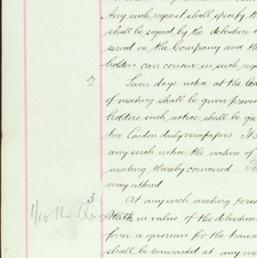 Any such request shall specify th
shall be signed by the debenture h
served on the Company and the
holders can concur in such req
2 Seven days notice at the lea
of meeting shall be given previo
holders, such notice shall be giv
two London daily newspapers. It s
any such notice the nature of
meeting thereby convened. Th
may attend
3 At any such meeting perso
in value of the debenture
form a quorum for the transac
shall be transacted at any me